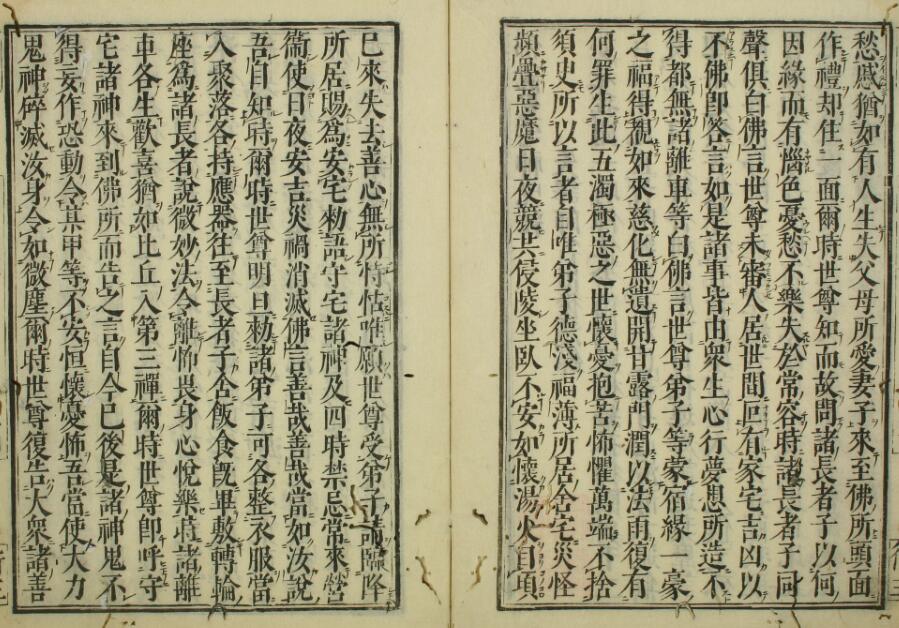 愁慼猶如有人生失父母所愛妻子來至佛所頭面
作禮却住一面爾時世尊知而故問諸長者子以何
因緣而有惱色憂愁不樂失於常容時諸長者子同
聲俱白佛言世尊未審人居世間但有家宅吉凶以
不佛即答言如是諸事皆由衆生心行夢想所造不
得都無諸離車等白佛言世尊弟子等蒙宿緣一豪
之福得覩如來慈化無遺開甘露門潤以法雨復有
何罪生此五濁極惡之世懷憂抱苦怖懼萬端不捨
須史所以言者自唯弟子德淺福薄所居舍宅災怪
頻疊惡魔日夜競共侵陵坐臥不安如懷湯火自頃
已來失去善心無所恃怙唯願世尊受弟子請臨降
所居賜爲安宅勑語守宅諸神及四時禁忌常來營
衞使日夜安吉災禍消滅佛言善哉善哉當如汝說
吾自知時爾時世尊明旦勑諸弟子可各整衣服當
入聚落各持應器往至長者子舍飯食旣畢敷轉輪
座爲諸長者說微妙法令離怖畏身心悅樂時諸離
車各生歡喜猶如比丘入第三禪爾時世尊即呼守
宅諸神來到佛所而告之言自今已後是諸神鬼不
得妄作恐動令某甲等不安恒懷憂怖吾當使大力
鬼神碎滅汝身令如微塵爾時世尊復告大衆諸善